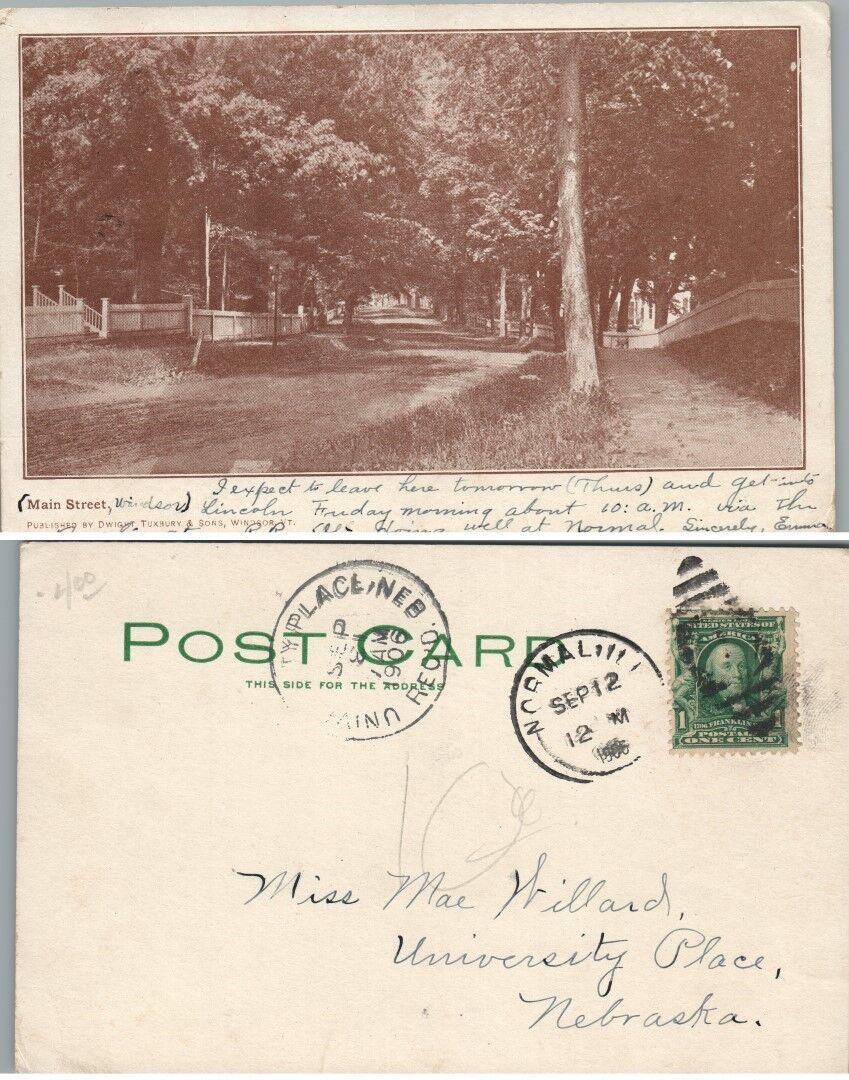 (Main Street, Windsor)
I expect to leave here tomorrow (Thurs) and get into
Lincoln Friday morning about 10:a.m. via the
PUBLISHED BY DWIGHT, TUXBURY & SONS, WINDSOR, VT.
R.R. All doing well at Normal. Sincerely, Emma
.400
POST CARD
THIS SIDE FOR THE ADDRESS
Y PLACE, NEB
SEP
AM
1906
REC'D
UNIV
NORMAL, ILL
SEP 12
12 M
1906
SERIES 1902
UNITED STATES OF
AMERICA
1 FRANKLIN 1
POSTAGE
ONE CENT
Miss Mae Willard,
University Place,
Nebraska.